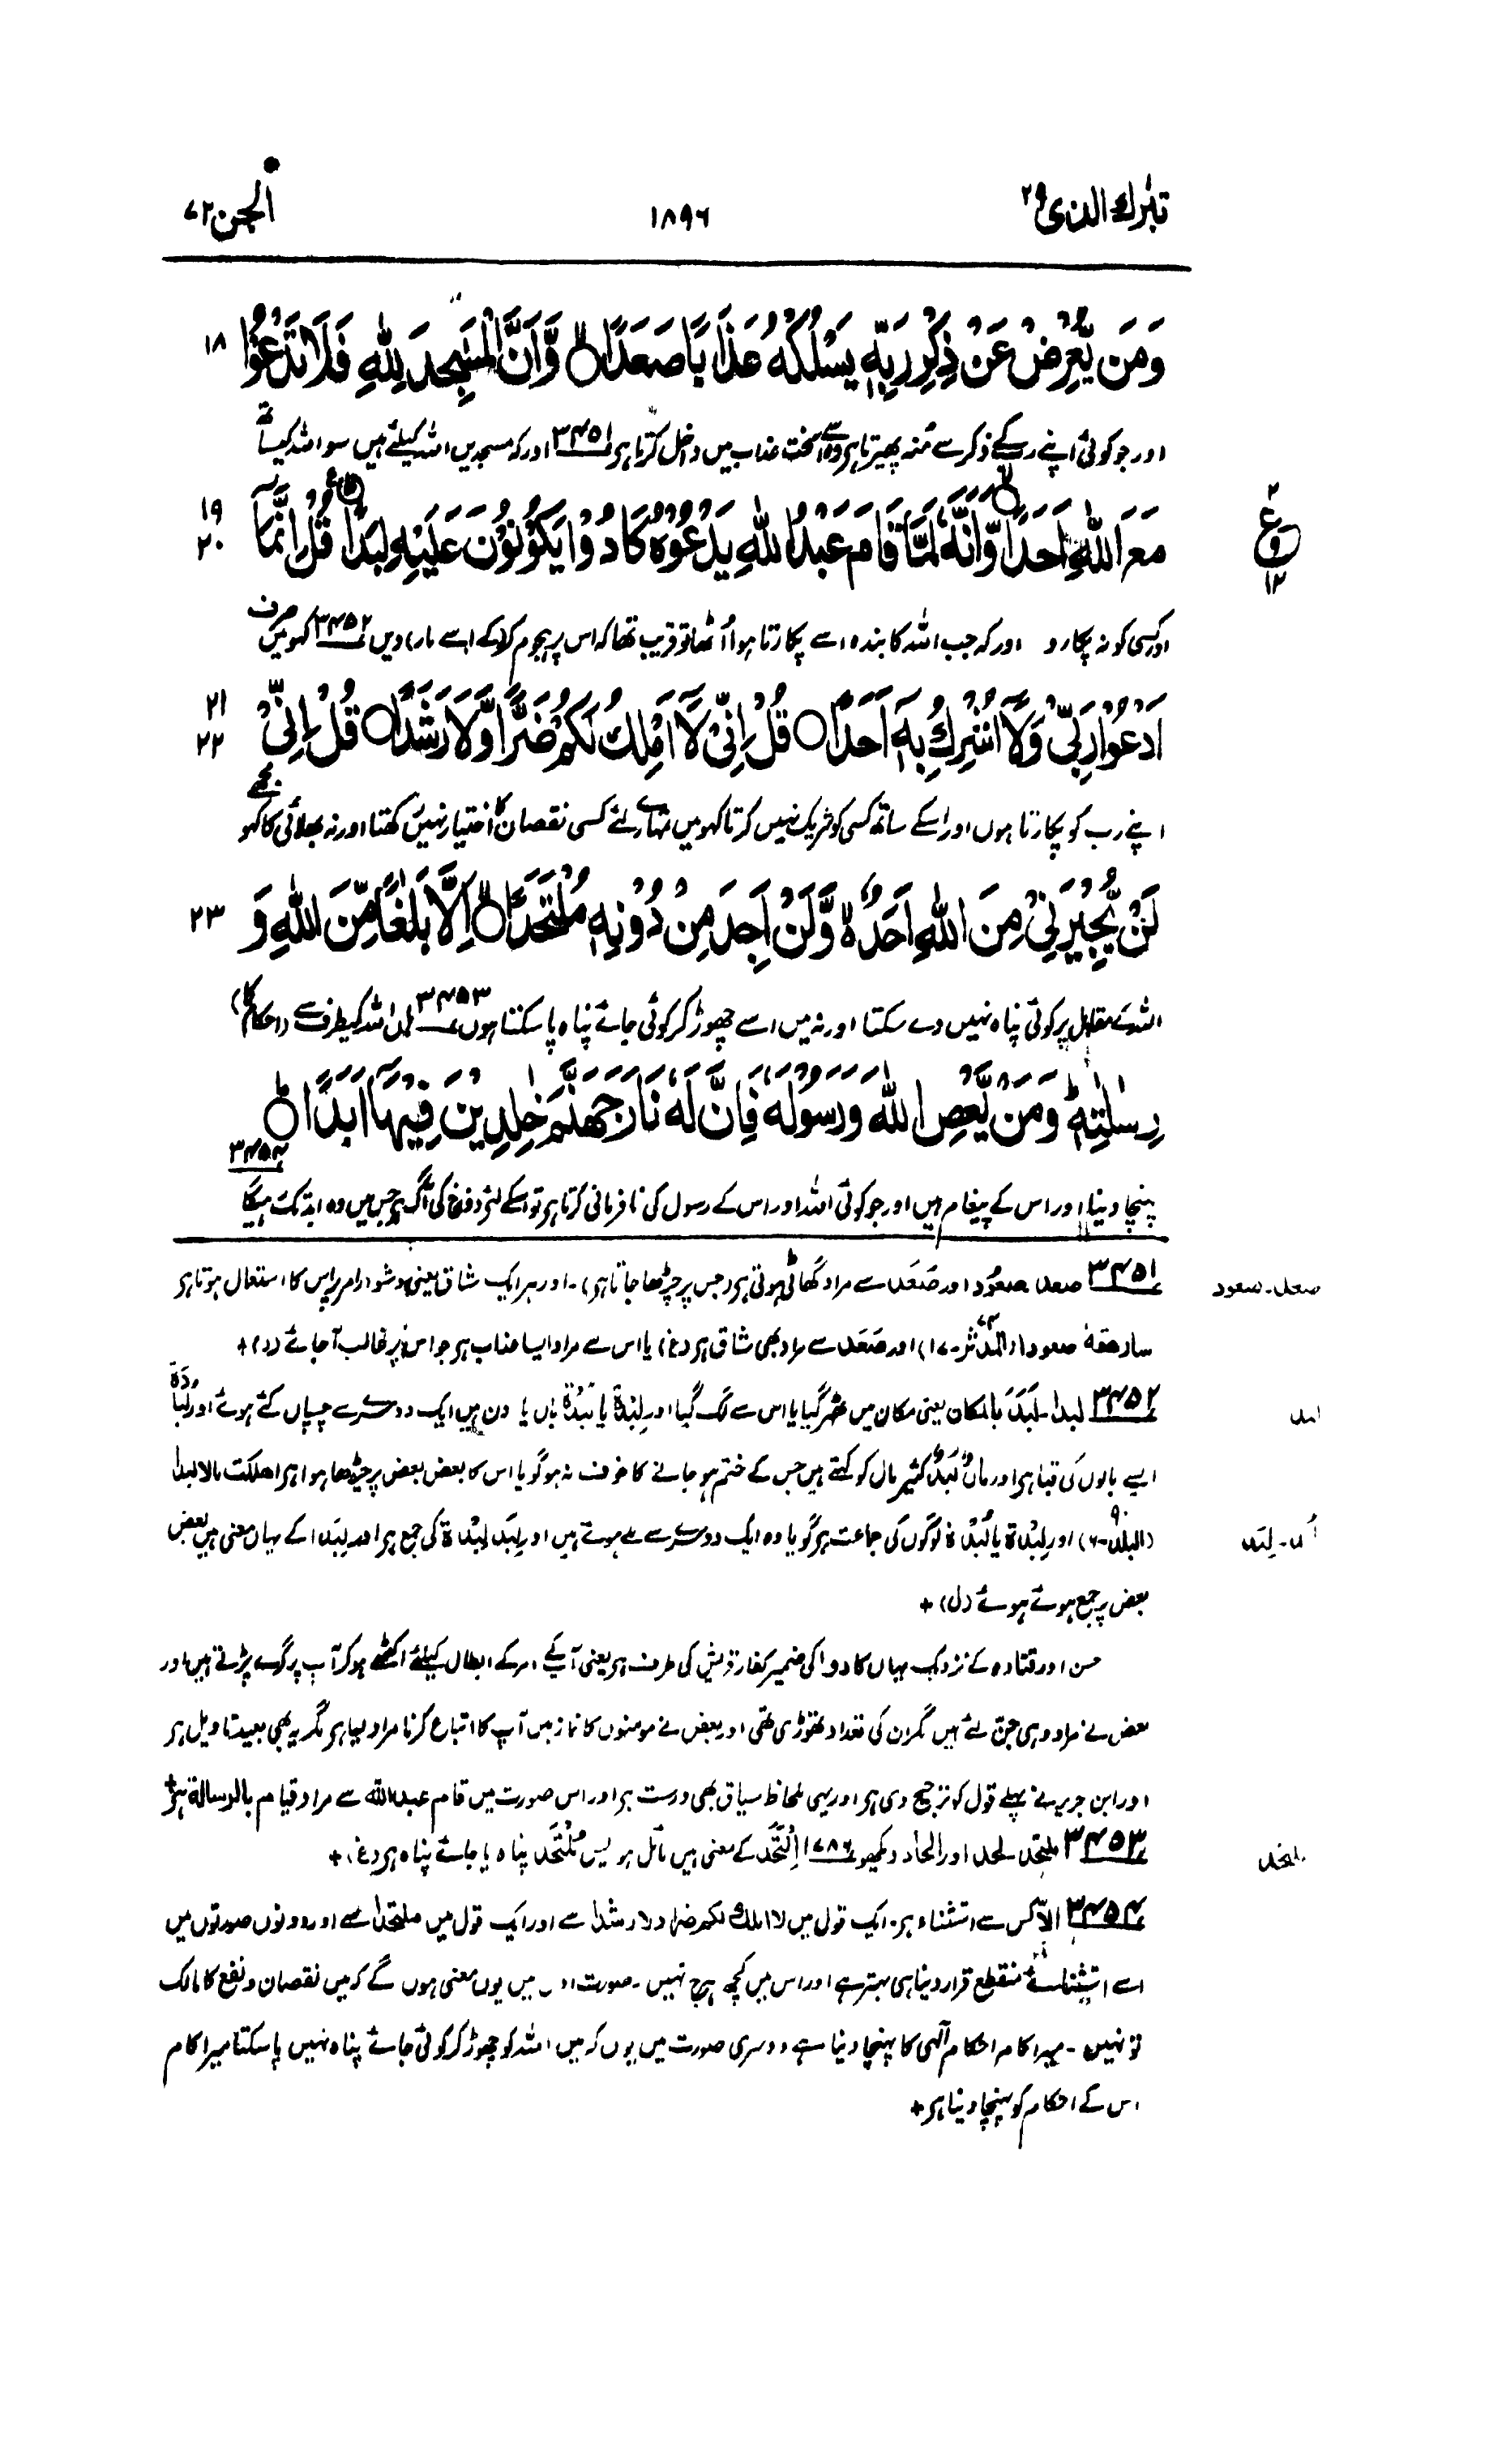 تبٰرك الذی ۲۹
۱۸۹۶
الجن ۷۲
وَمَنْ يُّعْرِضْ عَنْ ذِكْرِ رَبِّهٖ يَسْلُكْهُ عَذَابًا صَعَدًا ۙ وَّاَنَّ الْمَسٰجِدَ لِلّٰهِ فَلَا تَدْعُوْا ۱۸
اور جو کوئی اپنے رب کے ذکر سے مُنہ پھیرتا ہو وہ اسے سخت عذاب میں داخل کرتا ہو ۳۴۵۱ اور کہ مسجدیں اللہ کیلئے ہیں سو اللہ کیساتھ
مَعَ اللّٰهِ اَحَدًا ۙ وَّاَنَّهٗ لَمَّا قَامَ عَبْدُ اللّٰهِ يَدْعُوْهُ كَادُوْا يَكُوْنُوْنَ عَلَيْهِ لِبَدًا ۧ قُلْ اِنَّمَآ ۱۹ ۲۰
۲ ع ۱۲
اور کسی کو نہ پکارو اور کہ جب اللہ کا بندہ اسے پکارتا ہوا اُٹھا تو قریب تھا کہ اس پر ہجوم کر کے اسے مار دیں ۳۴۵۲ کہو میں صرف
اَدْعُوْا رَبِّيْ وَلَآ اُشْرِكُ بِهٖٓ اَحَدًا ○ قُلْ اِنِّيْ لَآ اَمْلِكُ لَكُمْ ضَرًّا وَّلَا رَشَدًا ○ قُلْ اِنِّيْ ۲۱ ۲۲
اپنے رب کو پکارتا ہوں اور اسکے ساتھ کسی کو شریک نہیں کرتا کہو میں تمہارے لئے کسی نقصان کا اختیار نہیں رکھتا اور نہ بھلائی کا کہو مجھے
لَنْ يُّجِيْرَنِيْ مِنَ اللّٰهِ اَحَدٌ ۙ وَّلَنْ اَجِدَ مِنْ دُوْنِهٖ مُلْتَحَدًا ۙ اِلَّا بَلٰغًا مِّنَ اللّٰهِ وَ ۲۳
اللہ کے مقابل پر کوئی پناہ نہیں دے سکتا اور نہ میں اسے چھوڑ کر کوئی جائے پناہ پا سکتا ہوں ۳۴۵۳ ہاں اللہ کیطرف سے (احکام کا)
رِسٰلٰتِهٖ ؕ وَمَنْ يَّعْصِ اللّٰهَ وَرَسُوْلَهٗ فَاِنَّ لَهٗ نَارَ جَهَنَّمَ خٰلِدِيْنَ فِيْهَآ اَبَدًا ؕ
پہنچا دینا اور اس کے پیغام ہیں اور جو کوئی اللہ اور اس کے رسول کی نافرمانی کرتا ہو تو اسکے لئے دوزخ کی آگ ہو جس میں وہ ابد تک رہیگا ۳۴۵۴
۳۴۵۱ صعدا صعُود اور صَعَد سے مراد گھاٹی ہوتی ہو (جس پر چڑھا جاتا ہو)۔ اور ہر ایک شاق یعنی دشوار امر پر اس کا استعمال ہوتا ہو
صعد۔ صعود
سارھقہ صعودا (المدثر۔۱۷) اور صَعَد سے مراد بھی شاق ہو (غ) یا اس سے مراد ایسا عذاب ہو جو اس پر غالب آ جائے (د) +
۳۴۵۲ لبدا۔ لَبَدَ بالمکان یعنی مکان میں ٹھہر گیا یا اس سے لگ گیا اور لِبْدَة یا لُبْدَة بال یا اون ہیں ایک دوسرے سے چسپاں کئے ہوئے اور لُبَّادَة
لبد
ایسے بالوں کی قبا ہو اور مالٌ لُبَدٌ کثیر مال کو کہتے ہیں جس کے ختم ہو جانے کا خوف نہ ہو گویا اس کا بعض بعض پر چڑھا ہوا ہو اھلکت مالا لبدا
(البلد ۹۰-۶) اور لِبْدَة یا لُبْدَة لوگوں کی جماعت ہو گویا وہ ایک دوسرے سے ملے ہوتے ہیں اور لِبَد لِبْدَة کی جمع ہو اور لِبَدا کے یہاں معنی ہیں بعض
لِبَد
بعض پر جمع ہوئے ہوئے (ل) +
حسن اور قتادہ کے نزدیک یہاں کادوا کی ضمیر کفار قریش کی طرف ہو یعنی آپکے امر کے ابطال کیلئے اکٹھے ہو کر آپ پر گرے پڑتے ہیں اور
بعض نے مراد وہی جن لئے ہیں مگر ان کی تعداد تھوڑی تھی اور بعض نے مومنوں کا نماز میں آپ کا اتباع کرنا مراد لیا ہو مگر یہ بھی بعید تاویل ہو
اور ابن جریر نے پہلے قول کو ترجیح دی ہو اور یہی بلحاظ سیاق بھی درست ہو اور اس صورت میں قام عبداللہ سے مراد قیام بالرسالة ہو +
۳۴۵۳ ملتحد لحد اور الحاد دیکھو ۱۷۸۶ اِلْتَحَد کے معنی ہیں مائل ہو پس مُلْتَحَد پناہ یا جائے پناہ ہو (غ) +
ملتحد
۳۴۵۴ الّا کس سے استثناء ہو۔ ایک قول میں لا املك لكم ضرا ولا رشدا سے اور ایک قول میں ملتحدا سے اور دونوں صورتوں میں
اسے استثنائے منقطع قرار دینا ہی بہتر ہے اور اس میں کچھ ہرج نہیں۔ صورت اول میں یوں معنی ہوں گے کہ میں نقصان و نفع کا مالک
تو نہیں۔ میرا کام احکام الٰہی کا پہنچا دینا ہے دوسری صورت میں یوں کہ میں اللہ کو چھوڑ کر کوئی جائے پناہ نہیں پا سکتا میرا کام
اس کے احکام کو پہنچا دینا ہو +